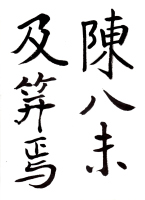 陳八未
及筭焉